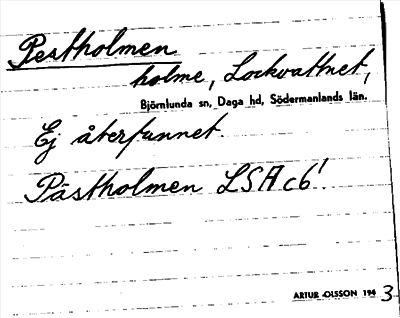 Pestholmen
holme, Lockvattnet,
Björnlunda sn, Daga hd, Södermanlands län.
Ej återfunnet.
Pästholmen LSA c6!.
ARTUR OLSSON 194 3